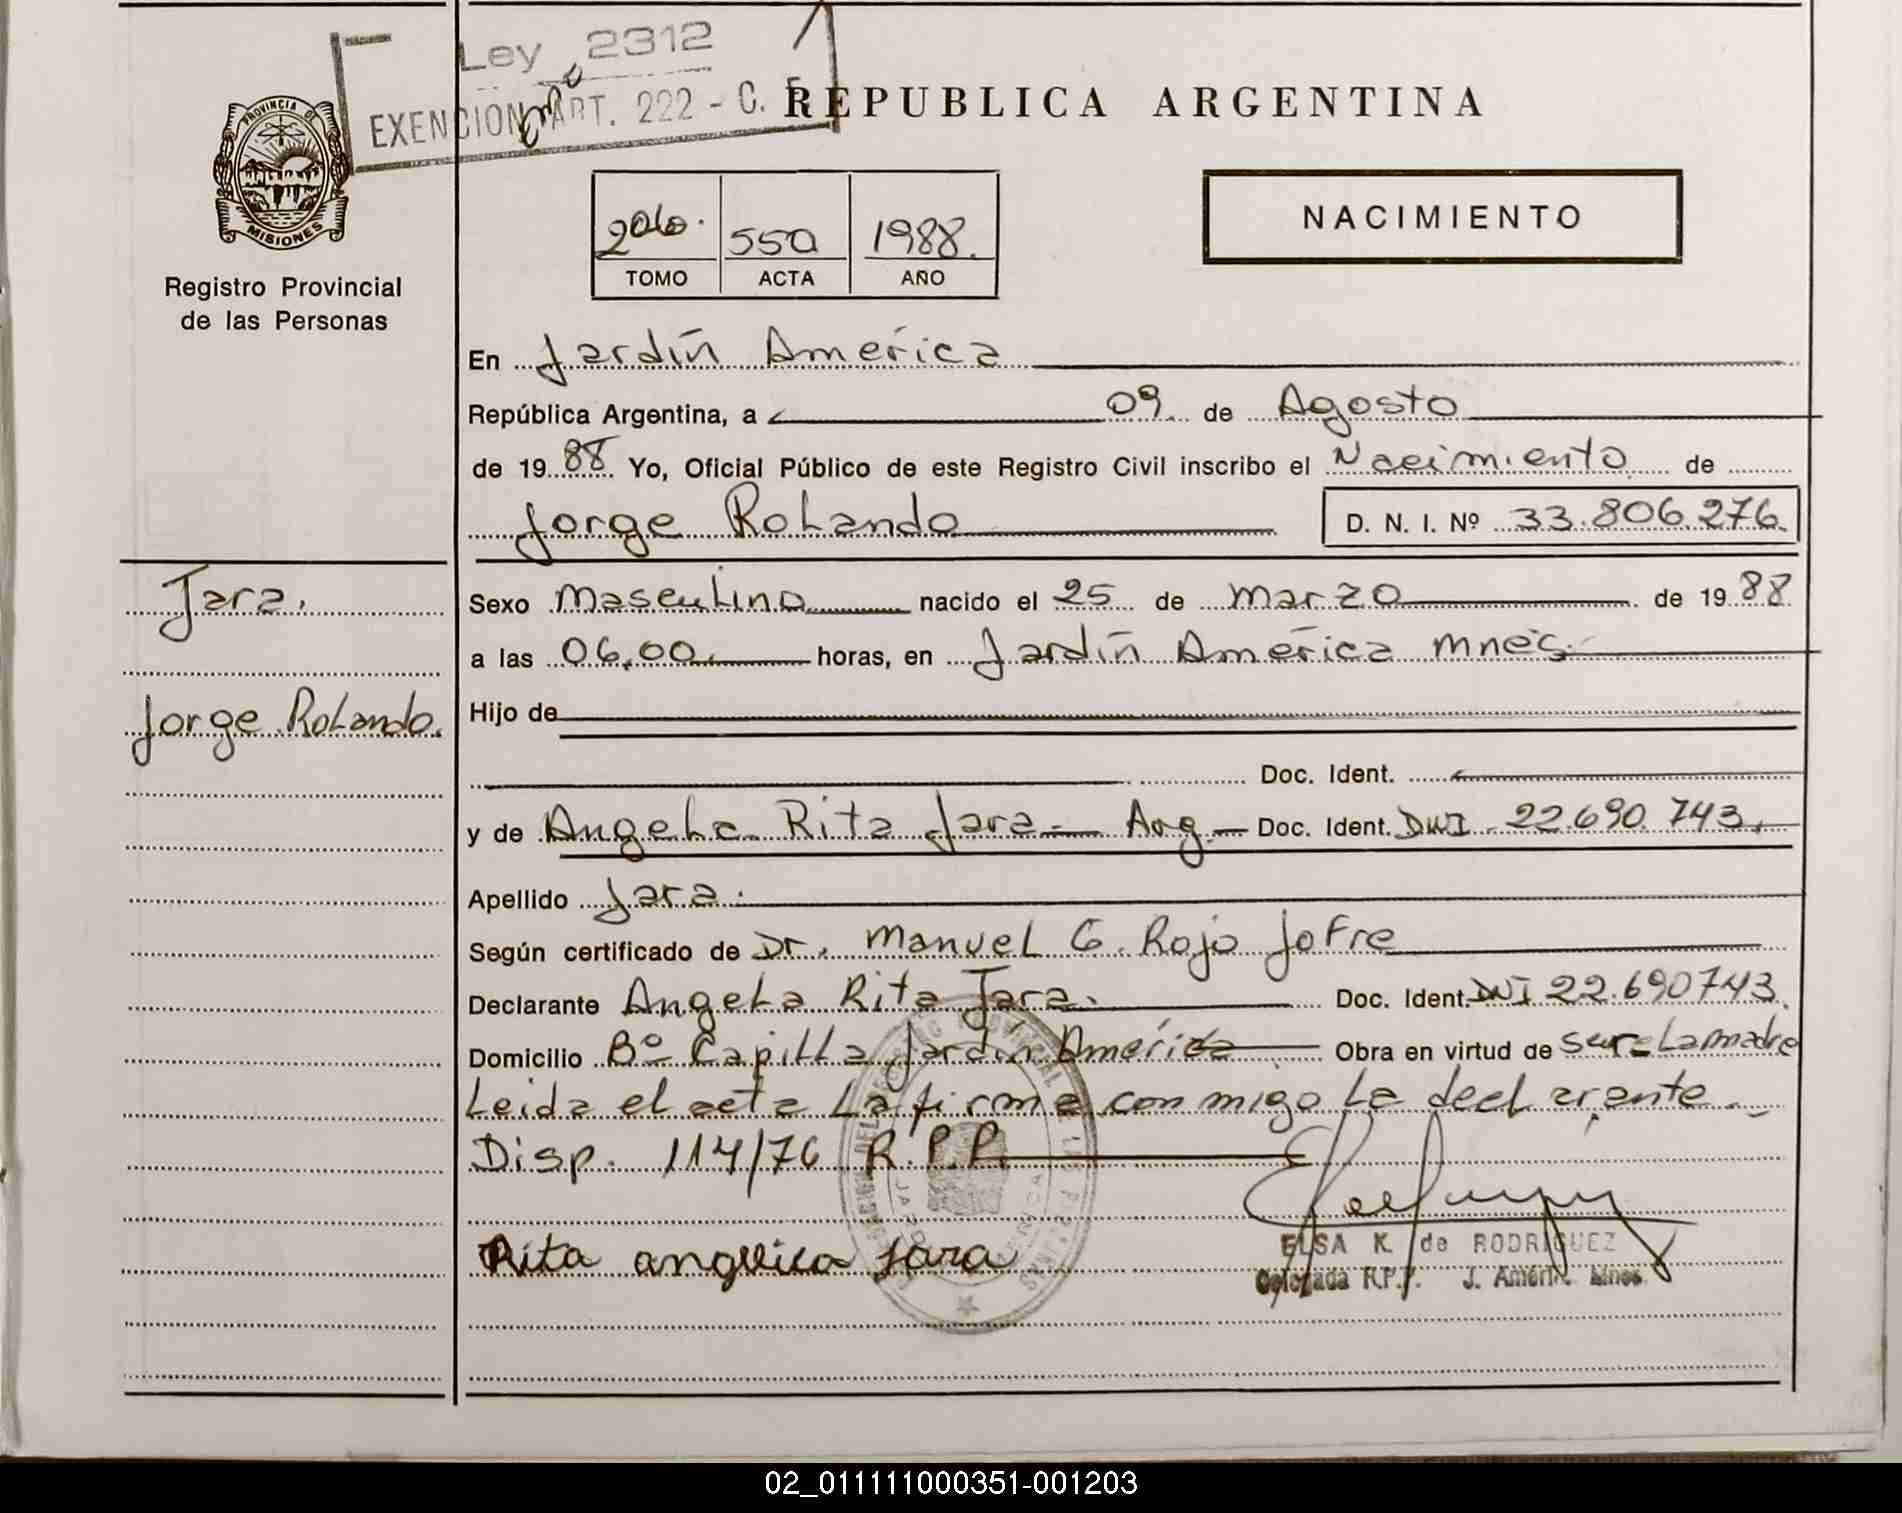 Ley 2312
EXENCION ART. 222 - C. F.
REPUBLICA ARGENTINA
PROVINCIA DE
MISIONES
Registro Provincial
de las Personas
550 1988.
TOMO ACTA AÑO
NACIMIENTO
En Jardín América
República Argentina, a 09 de Agosto
de 1988 Yo, Oficial Público de este Registro Civil inscribo el Nacimiento de
Jorge Rolando D. N. I. Nº 33.806.276.
Jara.
Jorge Rolando.
Sexo Masculino nacido el 25 de Marzo de 1988
a las 06,00 horas, en Jardín América Mnes.
Hijo de
Doc. Ident.
y de Angela Rita Jara - Arg - Doc. Ident. DNI 22.690.743.
Apellido Jara.
Según certificado de Dr. Manuel G. Rojo Jofre
Declarante Angela Rita Jara. Doc. Ident. DNI 22.690743.
Domicilio Bº Capilla Jardín América Obra en virtud de ser La madre
Leida el acta La firma con migo La declarante
Disp. 114/76 R.P.P.
Rita angelica Jara
ELSA K. de RODRIGUEZ
R.P.P. J. Améric. Mnes.
02_011111000351-001203